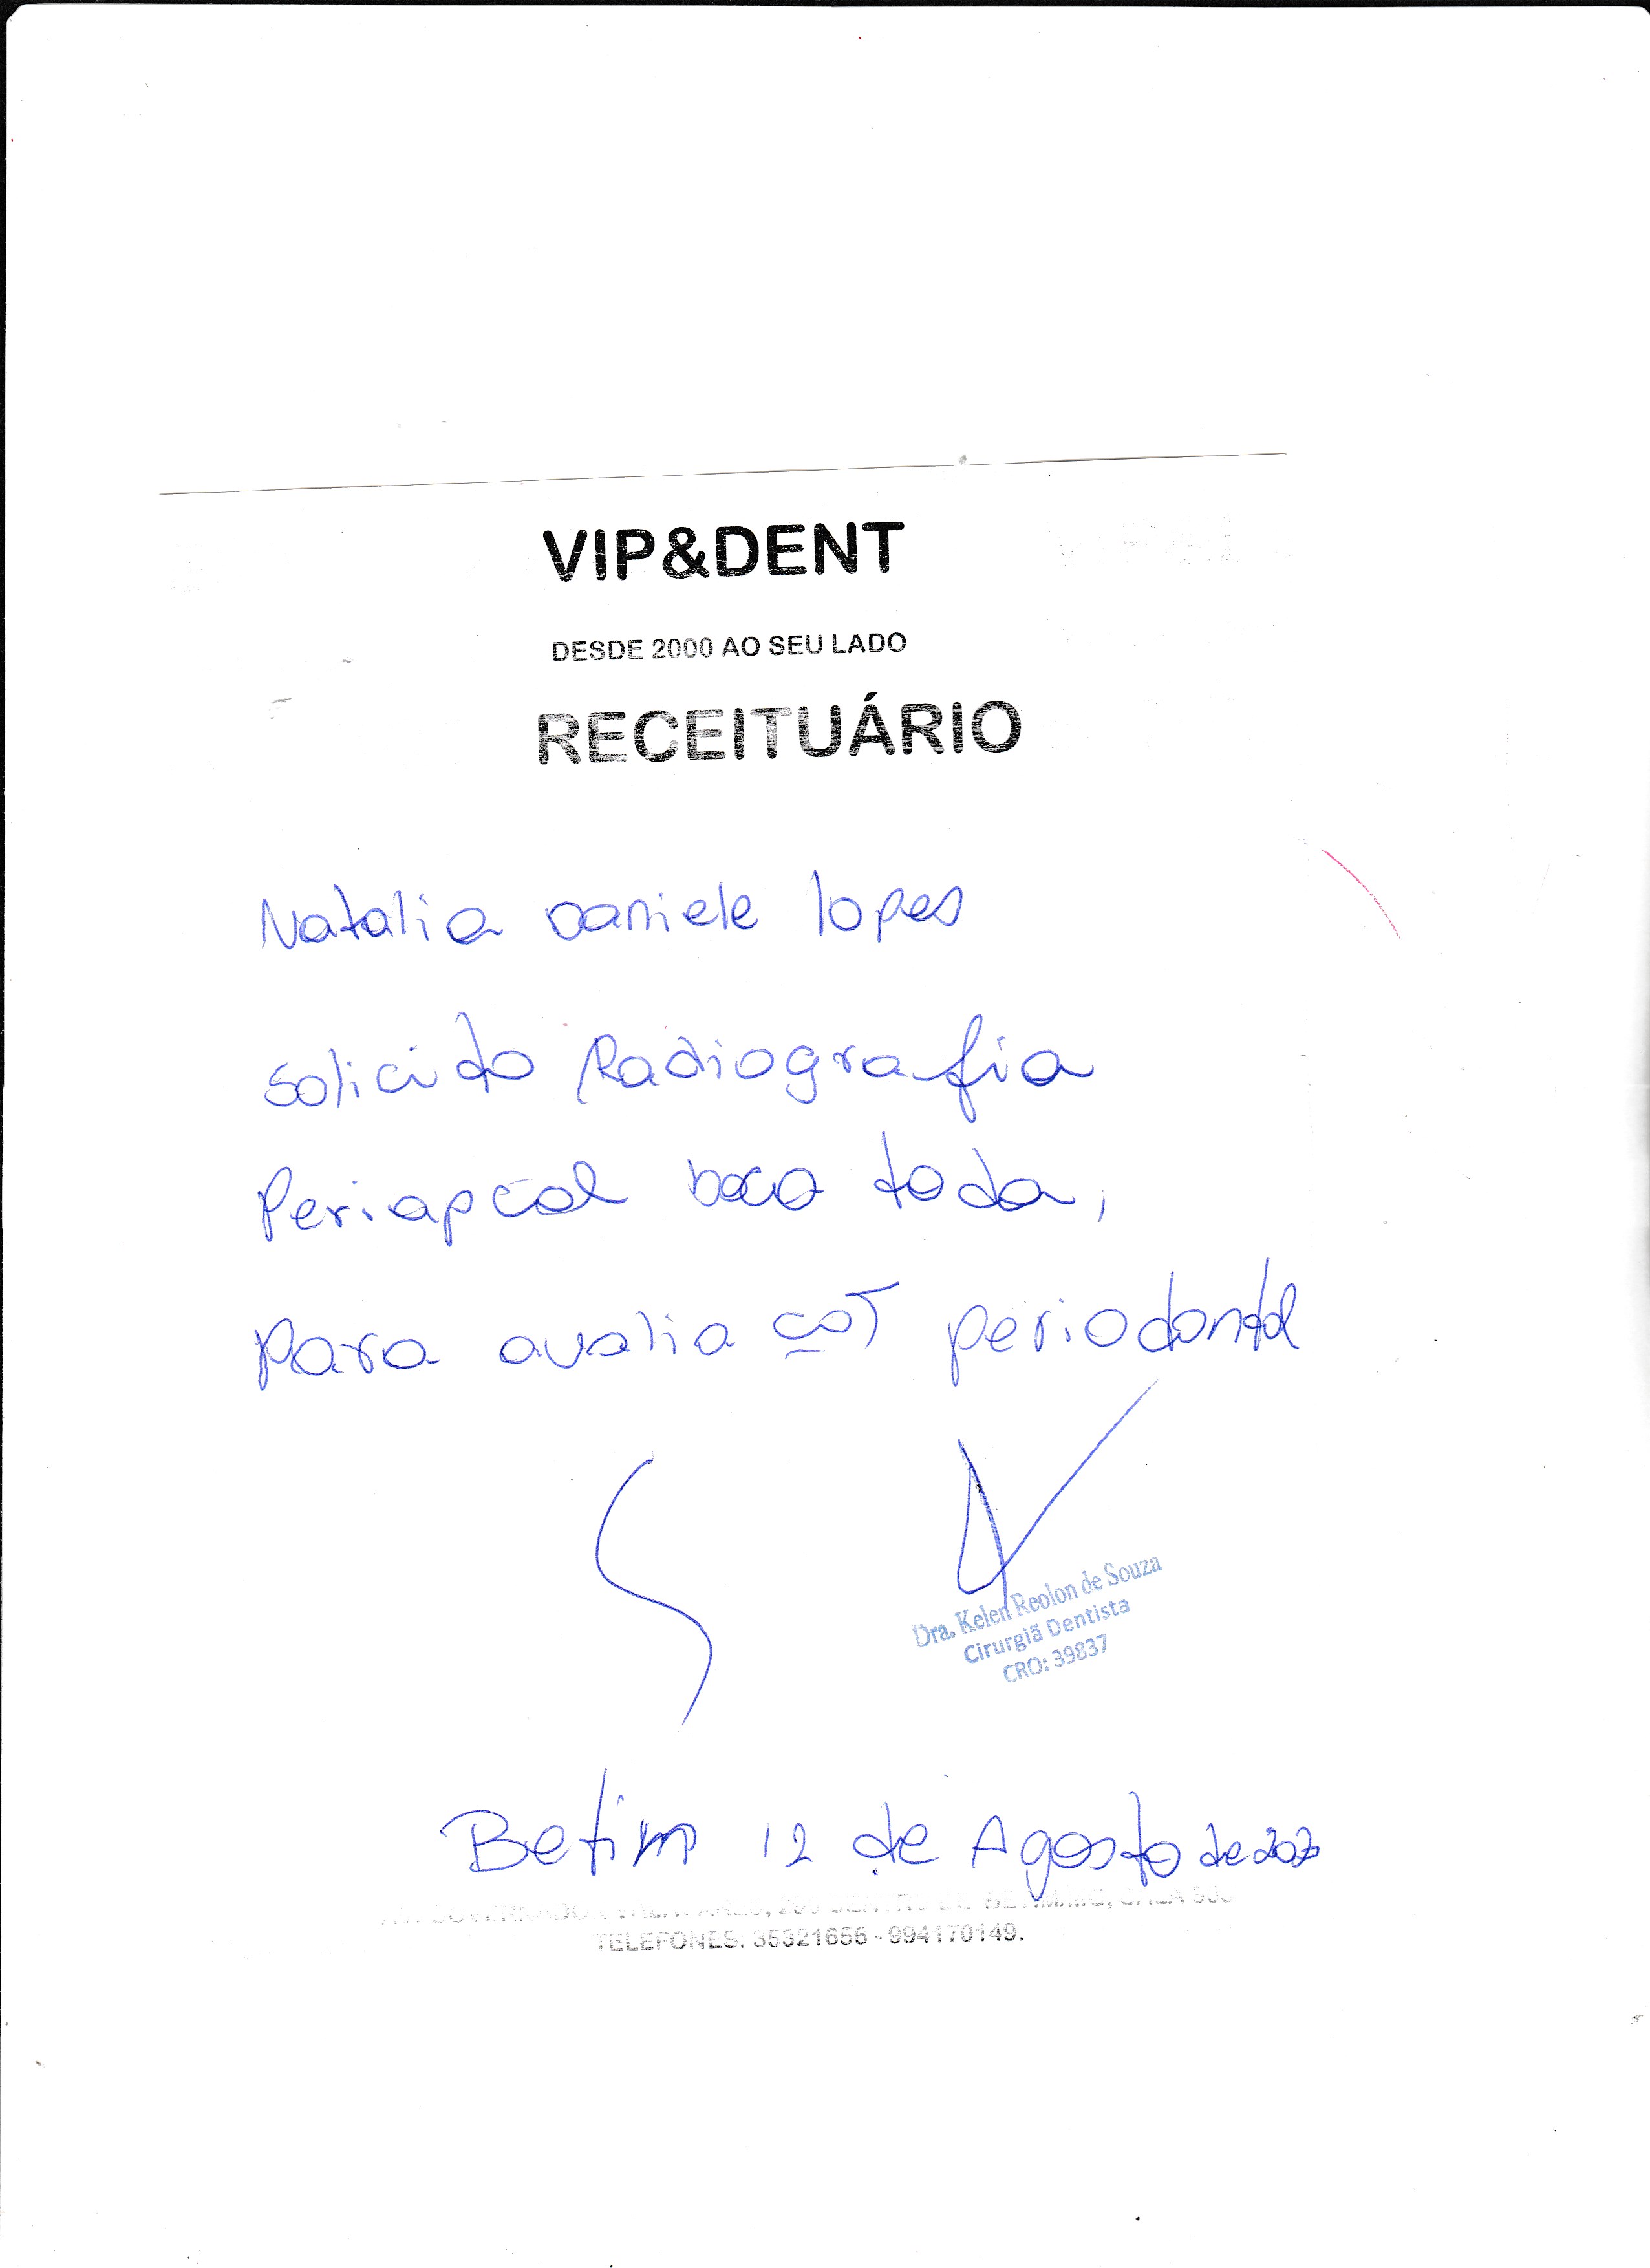 VIP&DENT
DESDE 2000 AO SEU LADO
RECEITUÁRIO
Natalia Daniele lopes
solicito Radiografia
Periapcal boca toda,
para avaliação periodontal
Dra. Kelen Reolon de Souza
Cirurgiã Dentista
CRO: 39837
Betim 12 de Agosto de
TELEFONES: 35321656 - 994170149.